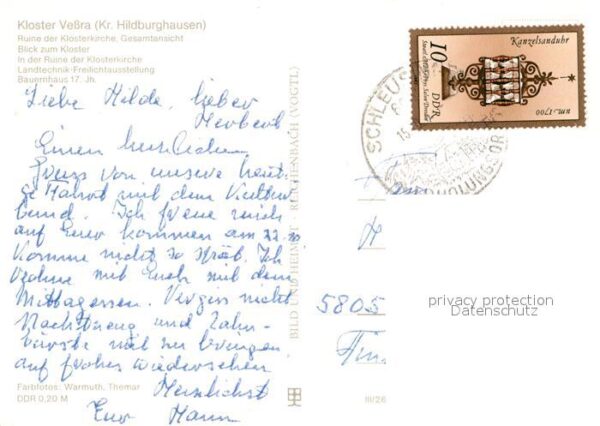 Kloster Veßra (Kr. Hildburghausen)
Ruine der Klosterkirche, Gesamtansicht
Blick zum Kloster
In der Ruine der Klosterkirche
Landtechnik-Freilichtausstellung
Bauernhaus 17. Jh.
Liebe Hilde, lieber
Herbert
Einen herzlichen
Gruss von unsere heuti-
ge Fahrt mit dem Kultur
bund. Ich freue mich
auf Euer kommen am 22.10.
Komme nicht so spät. Ich
rechne mit Euch mit dem
Mittagessen. Vergiss nicht
Nachtzeug und Zahn-
bürste mit zu bringen
auf frohes wiedersehen
Herzlichst
Eure Hanna
Farbfotos: Warmuth, Themar
DDR 0,20 M
BILD UND HEIMAT REICHENBACH (VOGTL)
III/26
Kanzelsanduhr
10
DDR
um 1700
SCHLEUSI
5805
privacy protection
Datenschutz